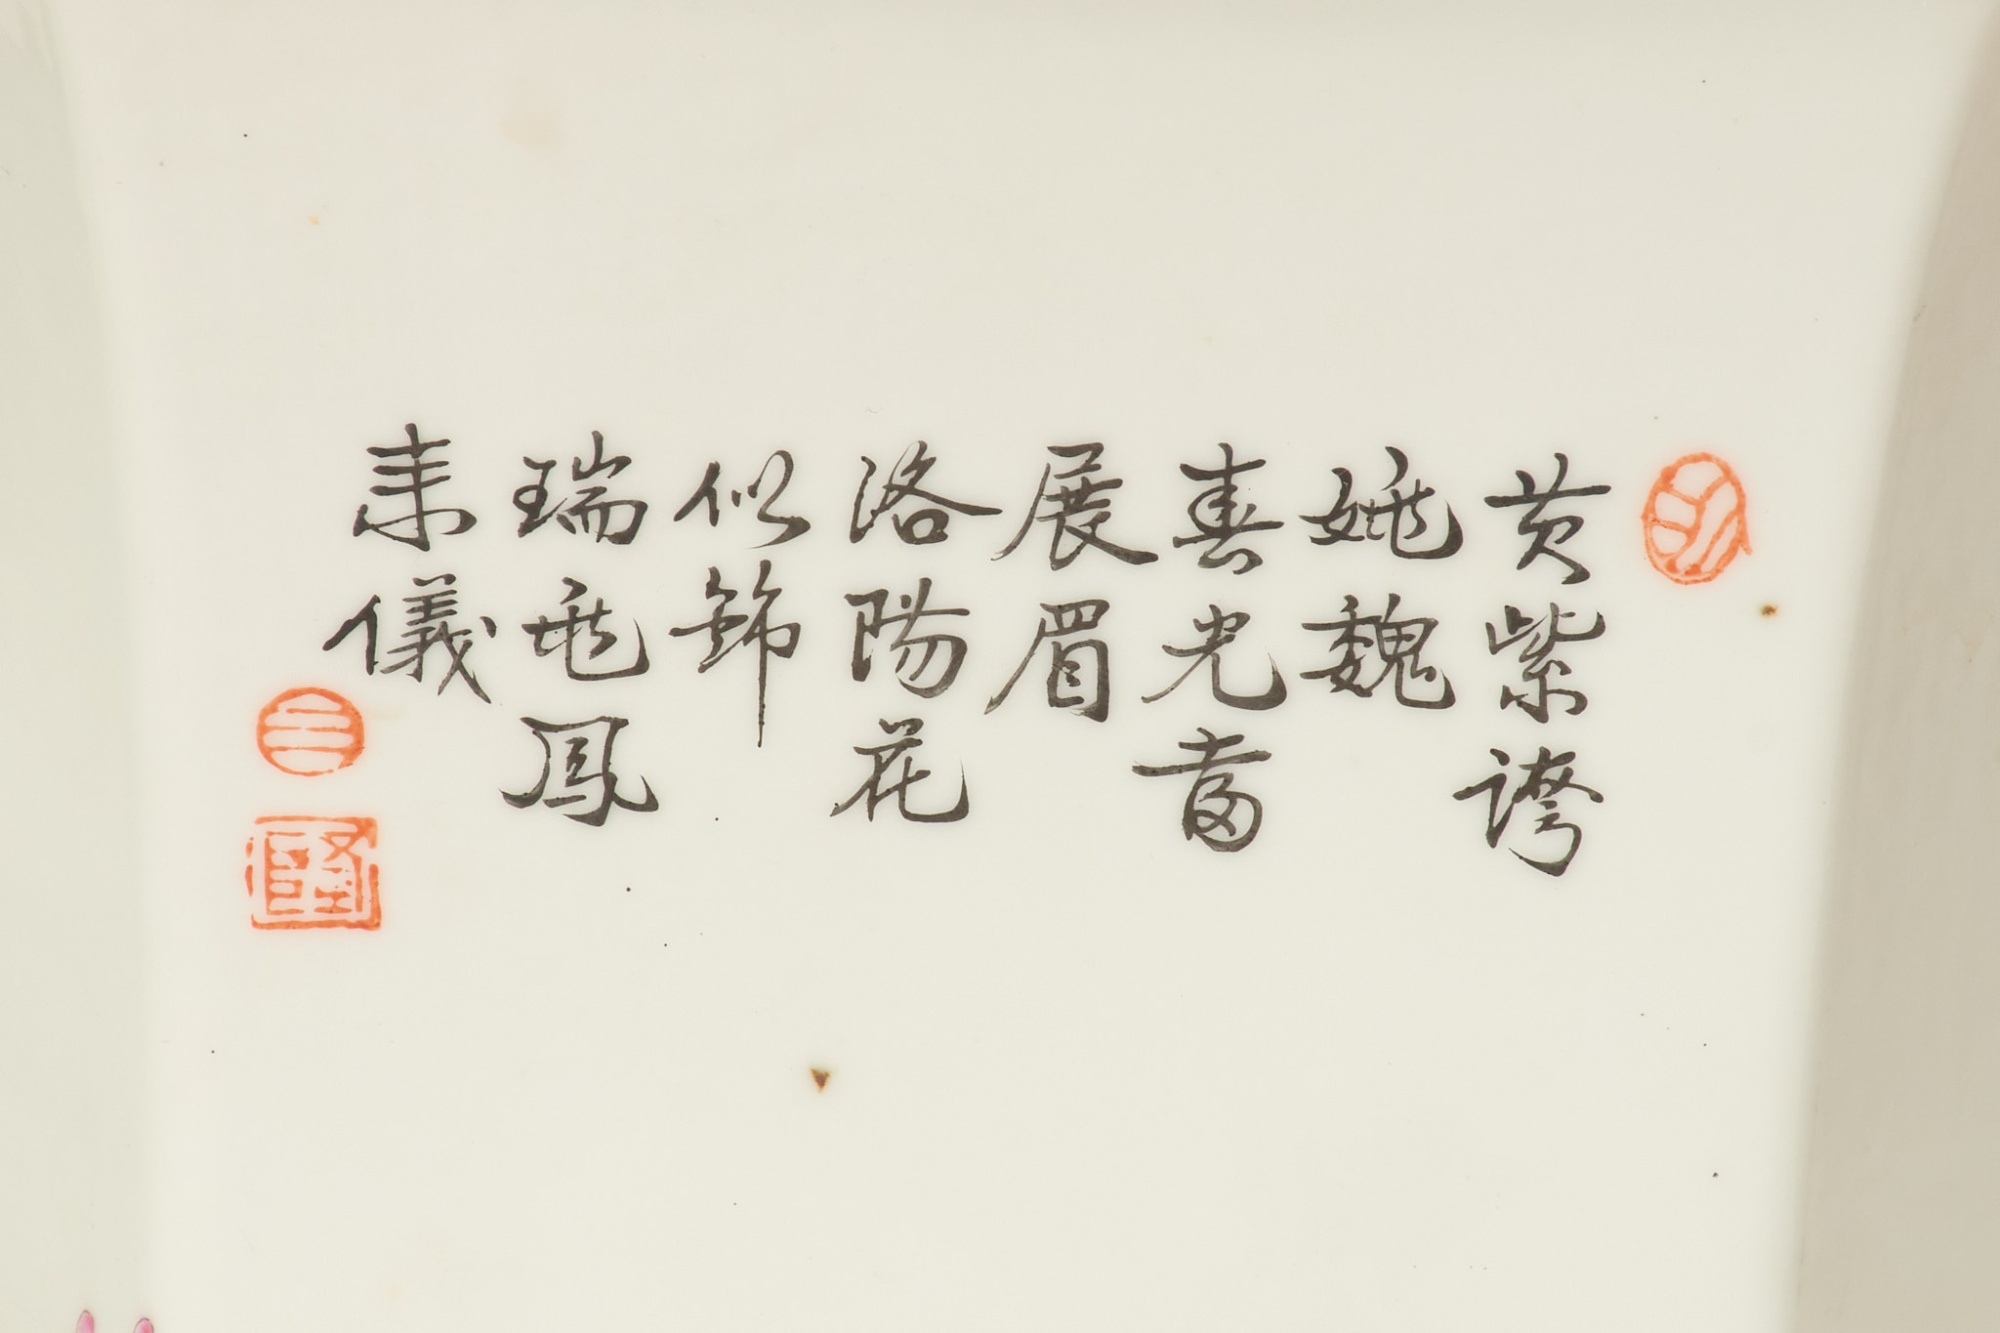 黄紫誇
姚魏
春光
展眉
洛陽花
似錦
瑞兆鳳
来儀